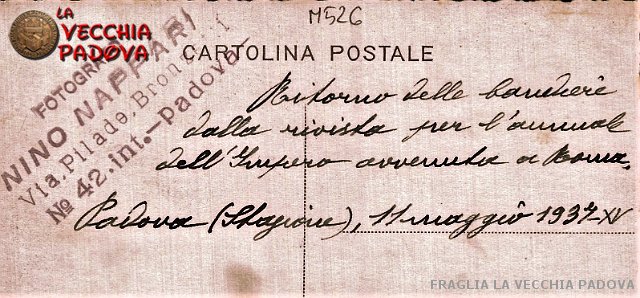 M526
LA
VECCHIA
PADOVA
CARTOLINA POSTALE
FOTOGRAFO
NINO NAPPARI
Via, Pilade, Bronzetti
№ 42. int.-Padova-
Ritorno delle bandiere
dalla rivista per l'annuale
dell'Impero avvenuta a Roma.
Padova (Stazione), 11 maggio 1937-XV
FRAGLIA LA VECCHIA PADOVA